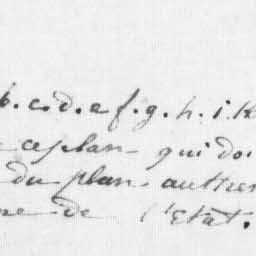 b. c. d. e f. g. h. i. k
ce plan qui doi
du plan authen
ne de l'Etat.